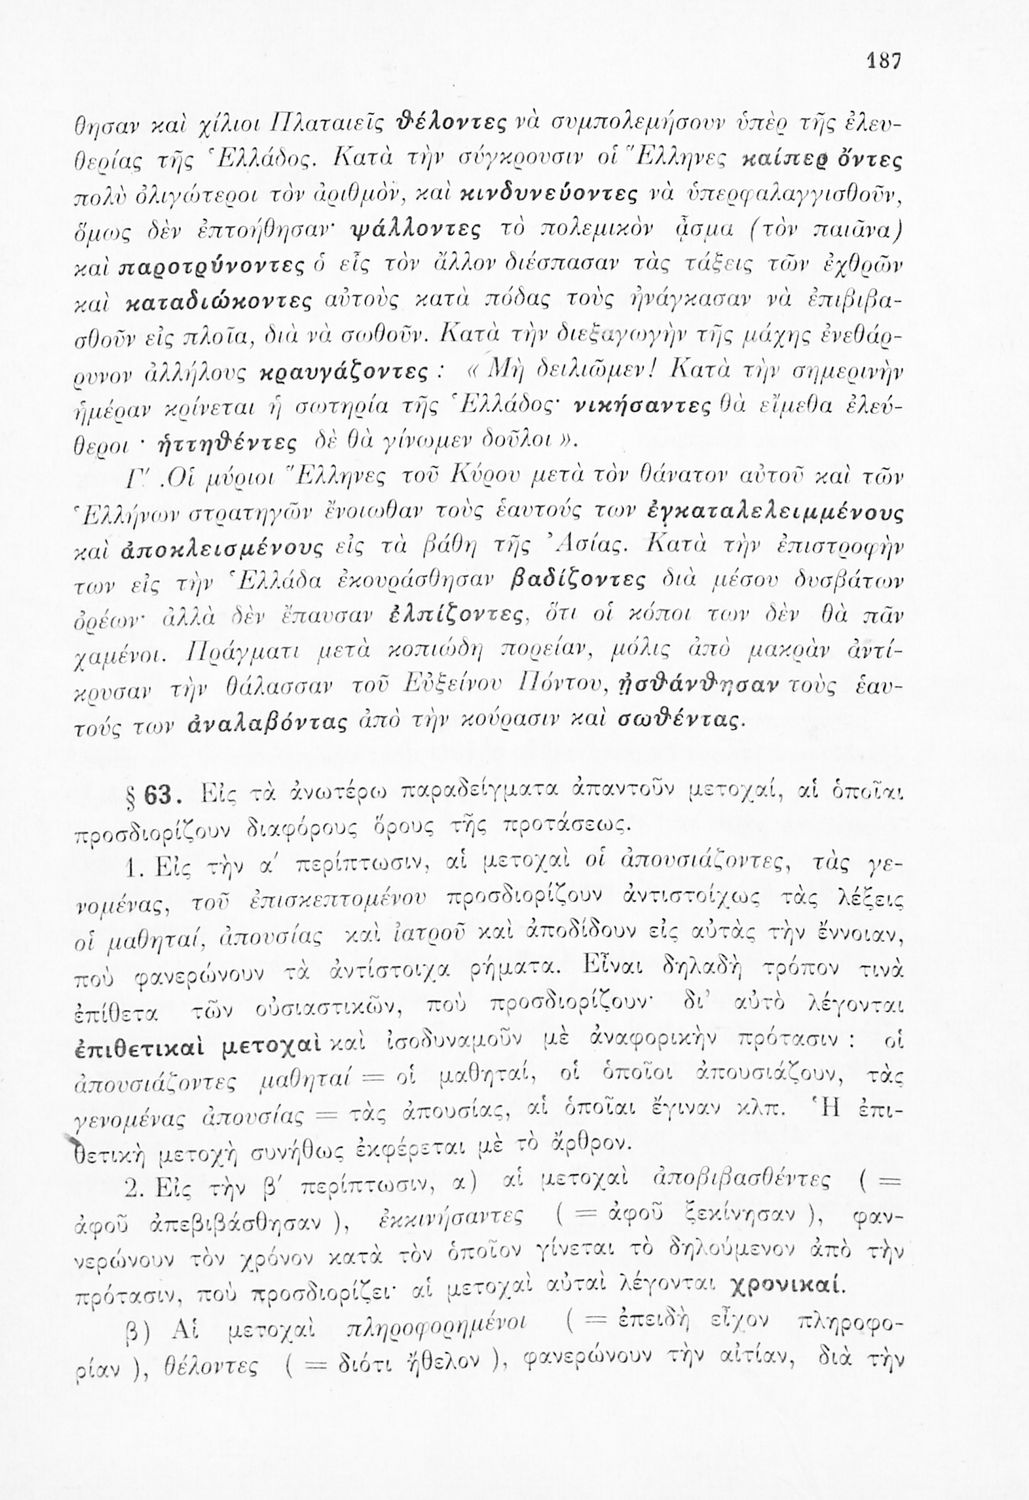 187
θησαν καὶ χίλιοι Πλαταιεῖς θέλοντες νὰ συμπολεμήσουν ὑπὲρ τῆς ἐλευ-
θερίας τῆς Ἑλλάδος. Κατὰ τὴν σύγκρουσιν οἱ Ἕλληνες καίπερ ὄντες
πολὺ ὀλιγώτεροι τὸν ἀριθμὸν, καὶ κινδυνεύοντες νὰ ὑπερφαλαγγισθοῦν,
ὅμως δὲν ἐπτοήθησαν· ψάλλοντες τὸ πολεμικὸν ᾆσμα (τὸν παιᾶνα)
καὶ παροτρύνοντες ὁ εἷς τὸν ἄλλον διέσπασαν τὰς τάξεις τῶν ἐχθρῶν
καὶ καταδιώκοντες αὐτοὺς κατὰ πόδας τοὺς ἠνάγκασαν νὰ ἐπιβιβα-
σθοῦν εἰς πλοῖα, διὰ νὰ σωθοῦν. Κατὰ τὴν διεξαγωγὴν τῆς μάχης ἐνεθάρ-
ρυνον ἀλλήλους κραυγάζοντες : « Μὴ δειλιῶμεν! Κατὰ τὴν σημερινὴν
ἡμέραν κρίνεται ἡ σωτηρία τῆς Ἑλλάδος· νικήσαντες θὰ εἴμεθα ἐλεύ-
θεροι · ἡττηθέντες δὲ θὰ γίνωμεν δοῦλοι ».
Γ′ .Οἱ μύριοι Ἕλληνες τοῦ Κύρου μετὰ τὸν θάνατον αὐτοῦ καὶ τῶν
Ἑλλήνων στρατηγῶν ἔνοιωθαν τοὺς ἑαυτούς των ἐγκαταλελειμμένους
καὶ ἀποκλεισμένους εἰς τὰ βάθη τῆς Ἀσίας. Κατὰ τὴν ἐπιστροφὴν
των εἰς τὴν Ἑλλάδα ἐκουράσθησαν βαδίζοντες διὰ μέσου δυσβάτων
ὀρέων· ἀλλὰ δὲν ἔπαυσαν ἐλπίζοντες, ὅτι οἱ κόποι των δὲν θὰ πᾶν
χαμένοι. Πράγματι μετὰ κοπιώδη πορείαν, μόλις ἀπὸ μακρὰν ἀντί-
κρυσαν τὴν θάλασσαν τοῦ Εὐξείνου Πόντου, ᾐσθάνθησαν τοὺς ἑαυ-
τούς των ἀναλαβόντας ἀπὸ τὴν κούρασιν καὶ σωθέντας.
§ 63. Εἰς τὰ ἀνωτέρω παραδείγματα ἀπαντοῦν μετοχαί, αἱ ὁποῖαι
προσδιορίζουν διαφόρους ὅρους τῆς προτάσεως.
1. Εἰς τὴν α′ περίπτωσιν, αἱ μετοχαὶ οἱ ἀπουσιάζοντες, τὰς γε-
νομένας, τοῦ ἐπισκεπτομένου προσδιορίζουν ἀντιστοίχως τὰς λέξεις
οἱ μαθηταί, ἀπουσίας καὶ ἰατροῦ καὶ ἀποδίδουν εἰς αὐτὰς τὴν ἔννοιαν,
ποὺ φανερώνουν τὰ ἀντίστοιχα ρήματα. Εἶναι δηλαδὴ τρόπον τινὰ
ἐπίθετα τῶν οὐσιαστικῶν, ποὺ προσδιορίζουν· δι' αὐτὸ λέγονται
ἐπιθετικαὶ μετοχαὶ καὶ ἰσοδυναμοῦν μὲ ἀναφορικὴν πρότασιν : οἱ
ἀπουσιάζοντες μαθηταί = οἱ μαθηταί, οἱ ὁποῖοι ἀπουσιάζουν, τὰς
γενομένας ἀπουσίας = τὰς ἀπουσίας, αἱ ὁποῖαι ἔγιναν κλπ. Ἡ ἐπι-
θετικὴ μετοχὴ συνήθως ἐκφέρεται μὲ τὸ ἄρθρον.
2. Εἰς τὴν β′ περίπτωσιν, α) αἱ μετοχαὶ ἀποβιβασθέντες ( =
ἀφοῦ ἀπεβιβάσθησαν ), ἐκκινήσαντες ( = ἀφοῦ ξεκίνησαν ), φαν-
νερώνουν τὸν χρόνον κατὰ τὸν ὁποῖον γίνεται τὸ δηλούμενον ἀπὸ τὴν
πρότασιν, ποὺ προσδιορίζει· αἱ μετοχαὶ αὐταὶ λέγονται χρονικαί.
β) Αἱ μετοχαὶ πληροφορημένοι ( = ἐπειδὴ εἶχον πληροφο-
ρίαν ), θέλοντες ( = διότι ἤθελον ), φανερώνουν τὴν αἰτίαν, διὰ τὴν